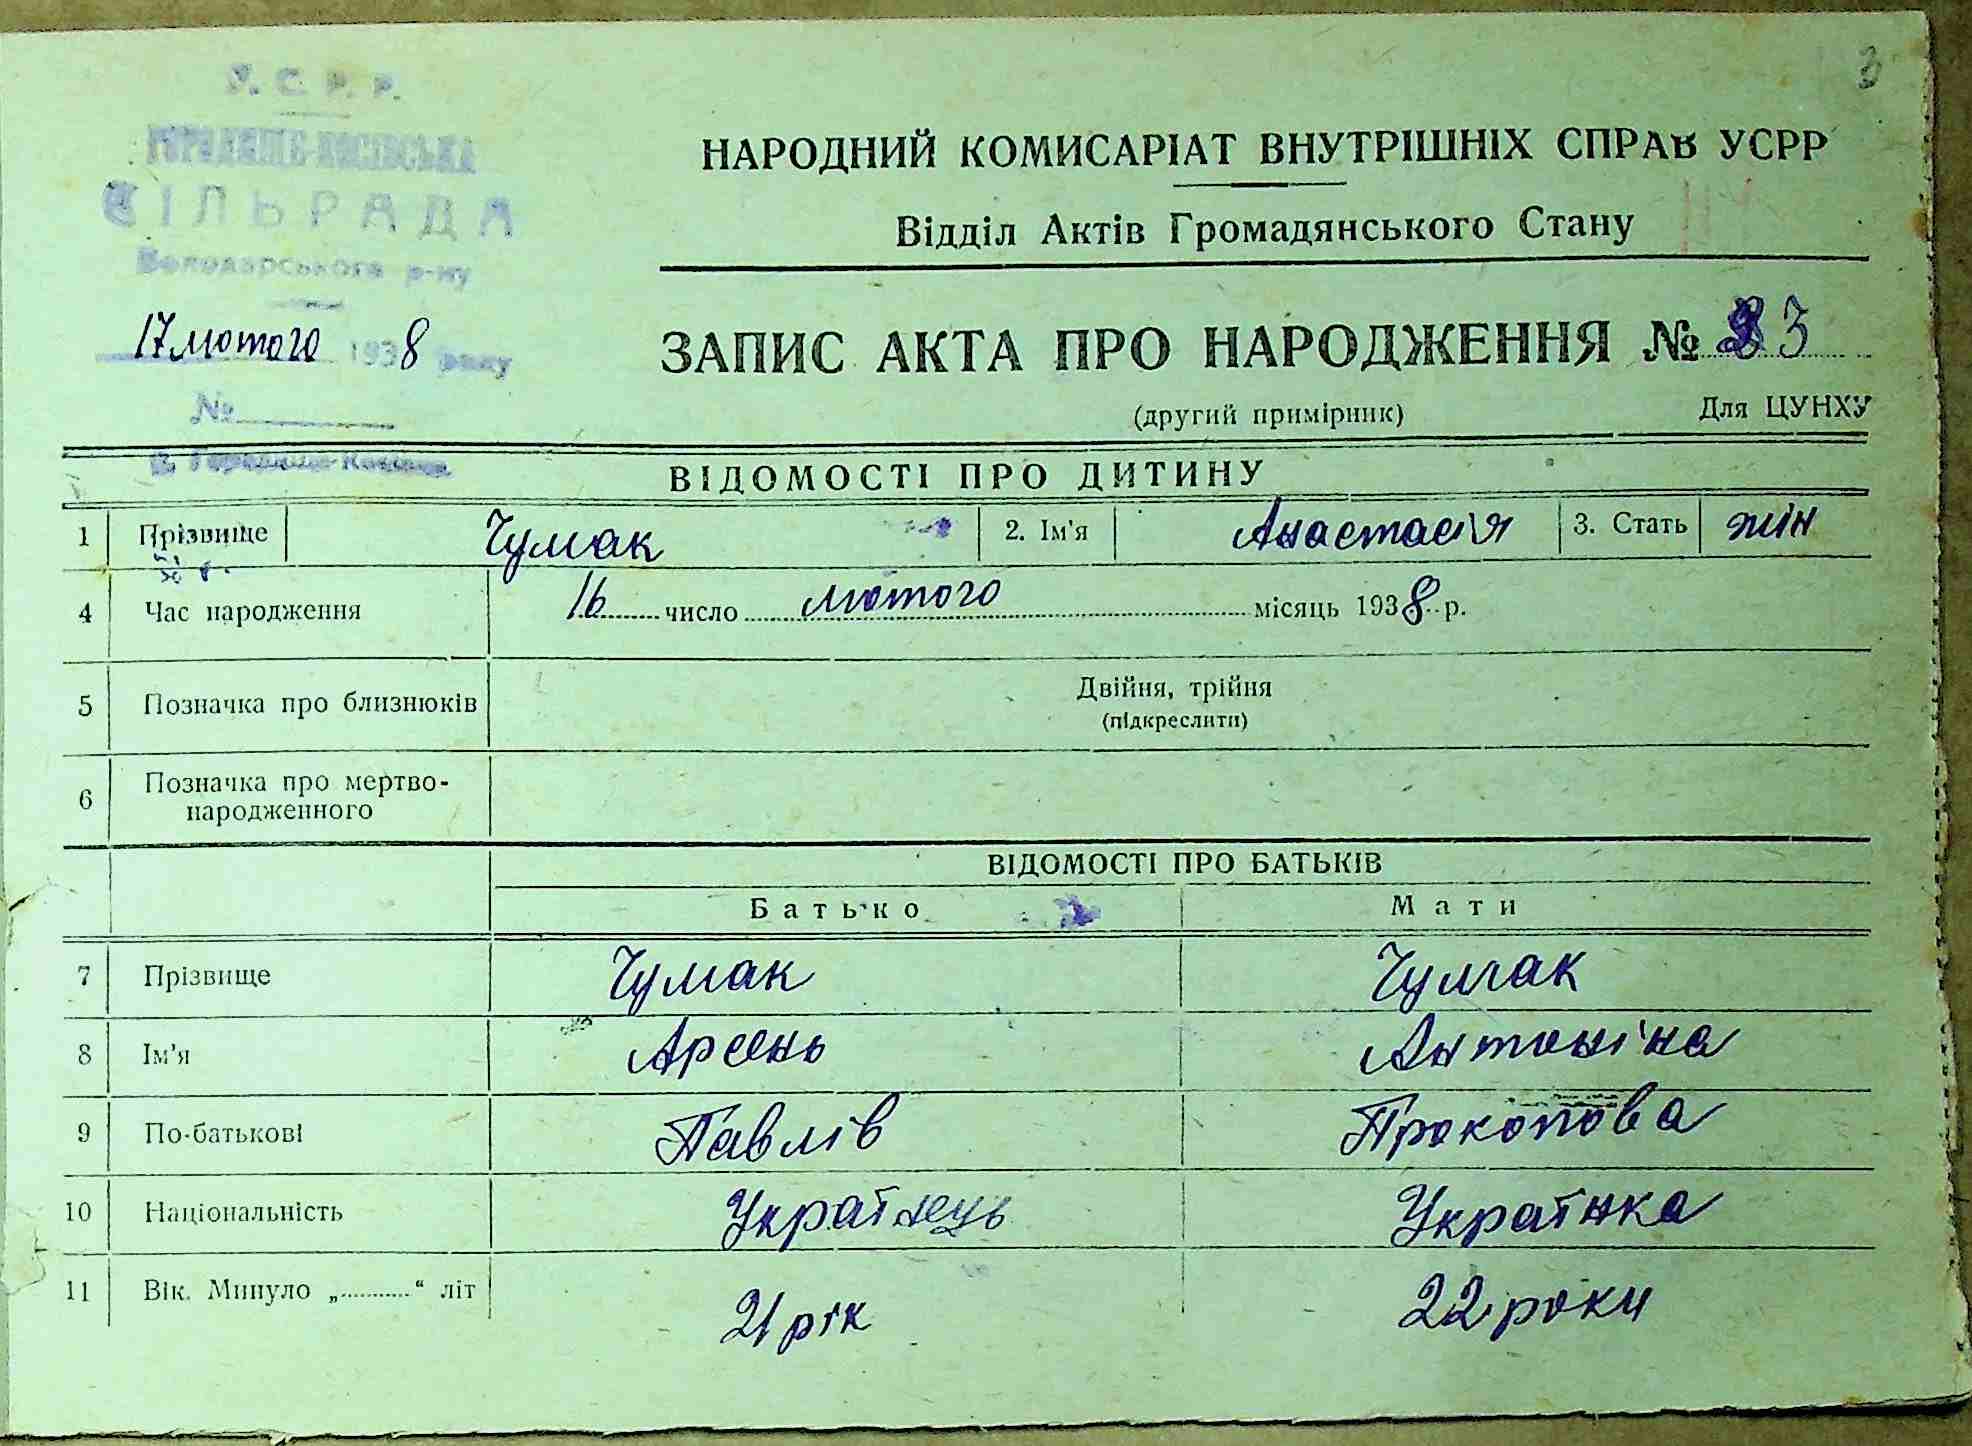 3
У. С. Р. Р.
ГОРОДИЩЕ-КОСІВСЬКА
СІЛЬРАДА
Володарського р-ну
17 лютого 1938 року
№
с. Городище-Косівка
НАРОДНИЙ КОМИСАРІАТ ВНУТРІШНІХ СПРАВ УСРР
Відділ Актів Громадянського Стану
ЗАПИС АКТА ПРО НАРОДЖЕННЯ № 3
(другий примірник) Для ЦУНХУ
ВІДОМОСТІ ПРО ДИТИНУ
1 Прізвище Чумак 2. Ім'я Анастасія 3. Стать жін
4 Час народження 16 число лютого місяць 1938 р.
5 Позначка про близнюків Двійня, трійня
(підкреслити)
6 Позначка про мертво-
народженного
ВІДОМОСТІ ПРО БАТЬКІВ
Батько Мати
7 Прізвище Чумак Чумак
8 Ім'я Арсень Антоніна
9 По-батькові Павлів Прокопова
10 Національність Українець Українка
11 Вік. Минуло „..........“ літ 21 рік 22 роки